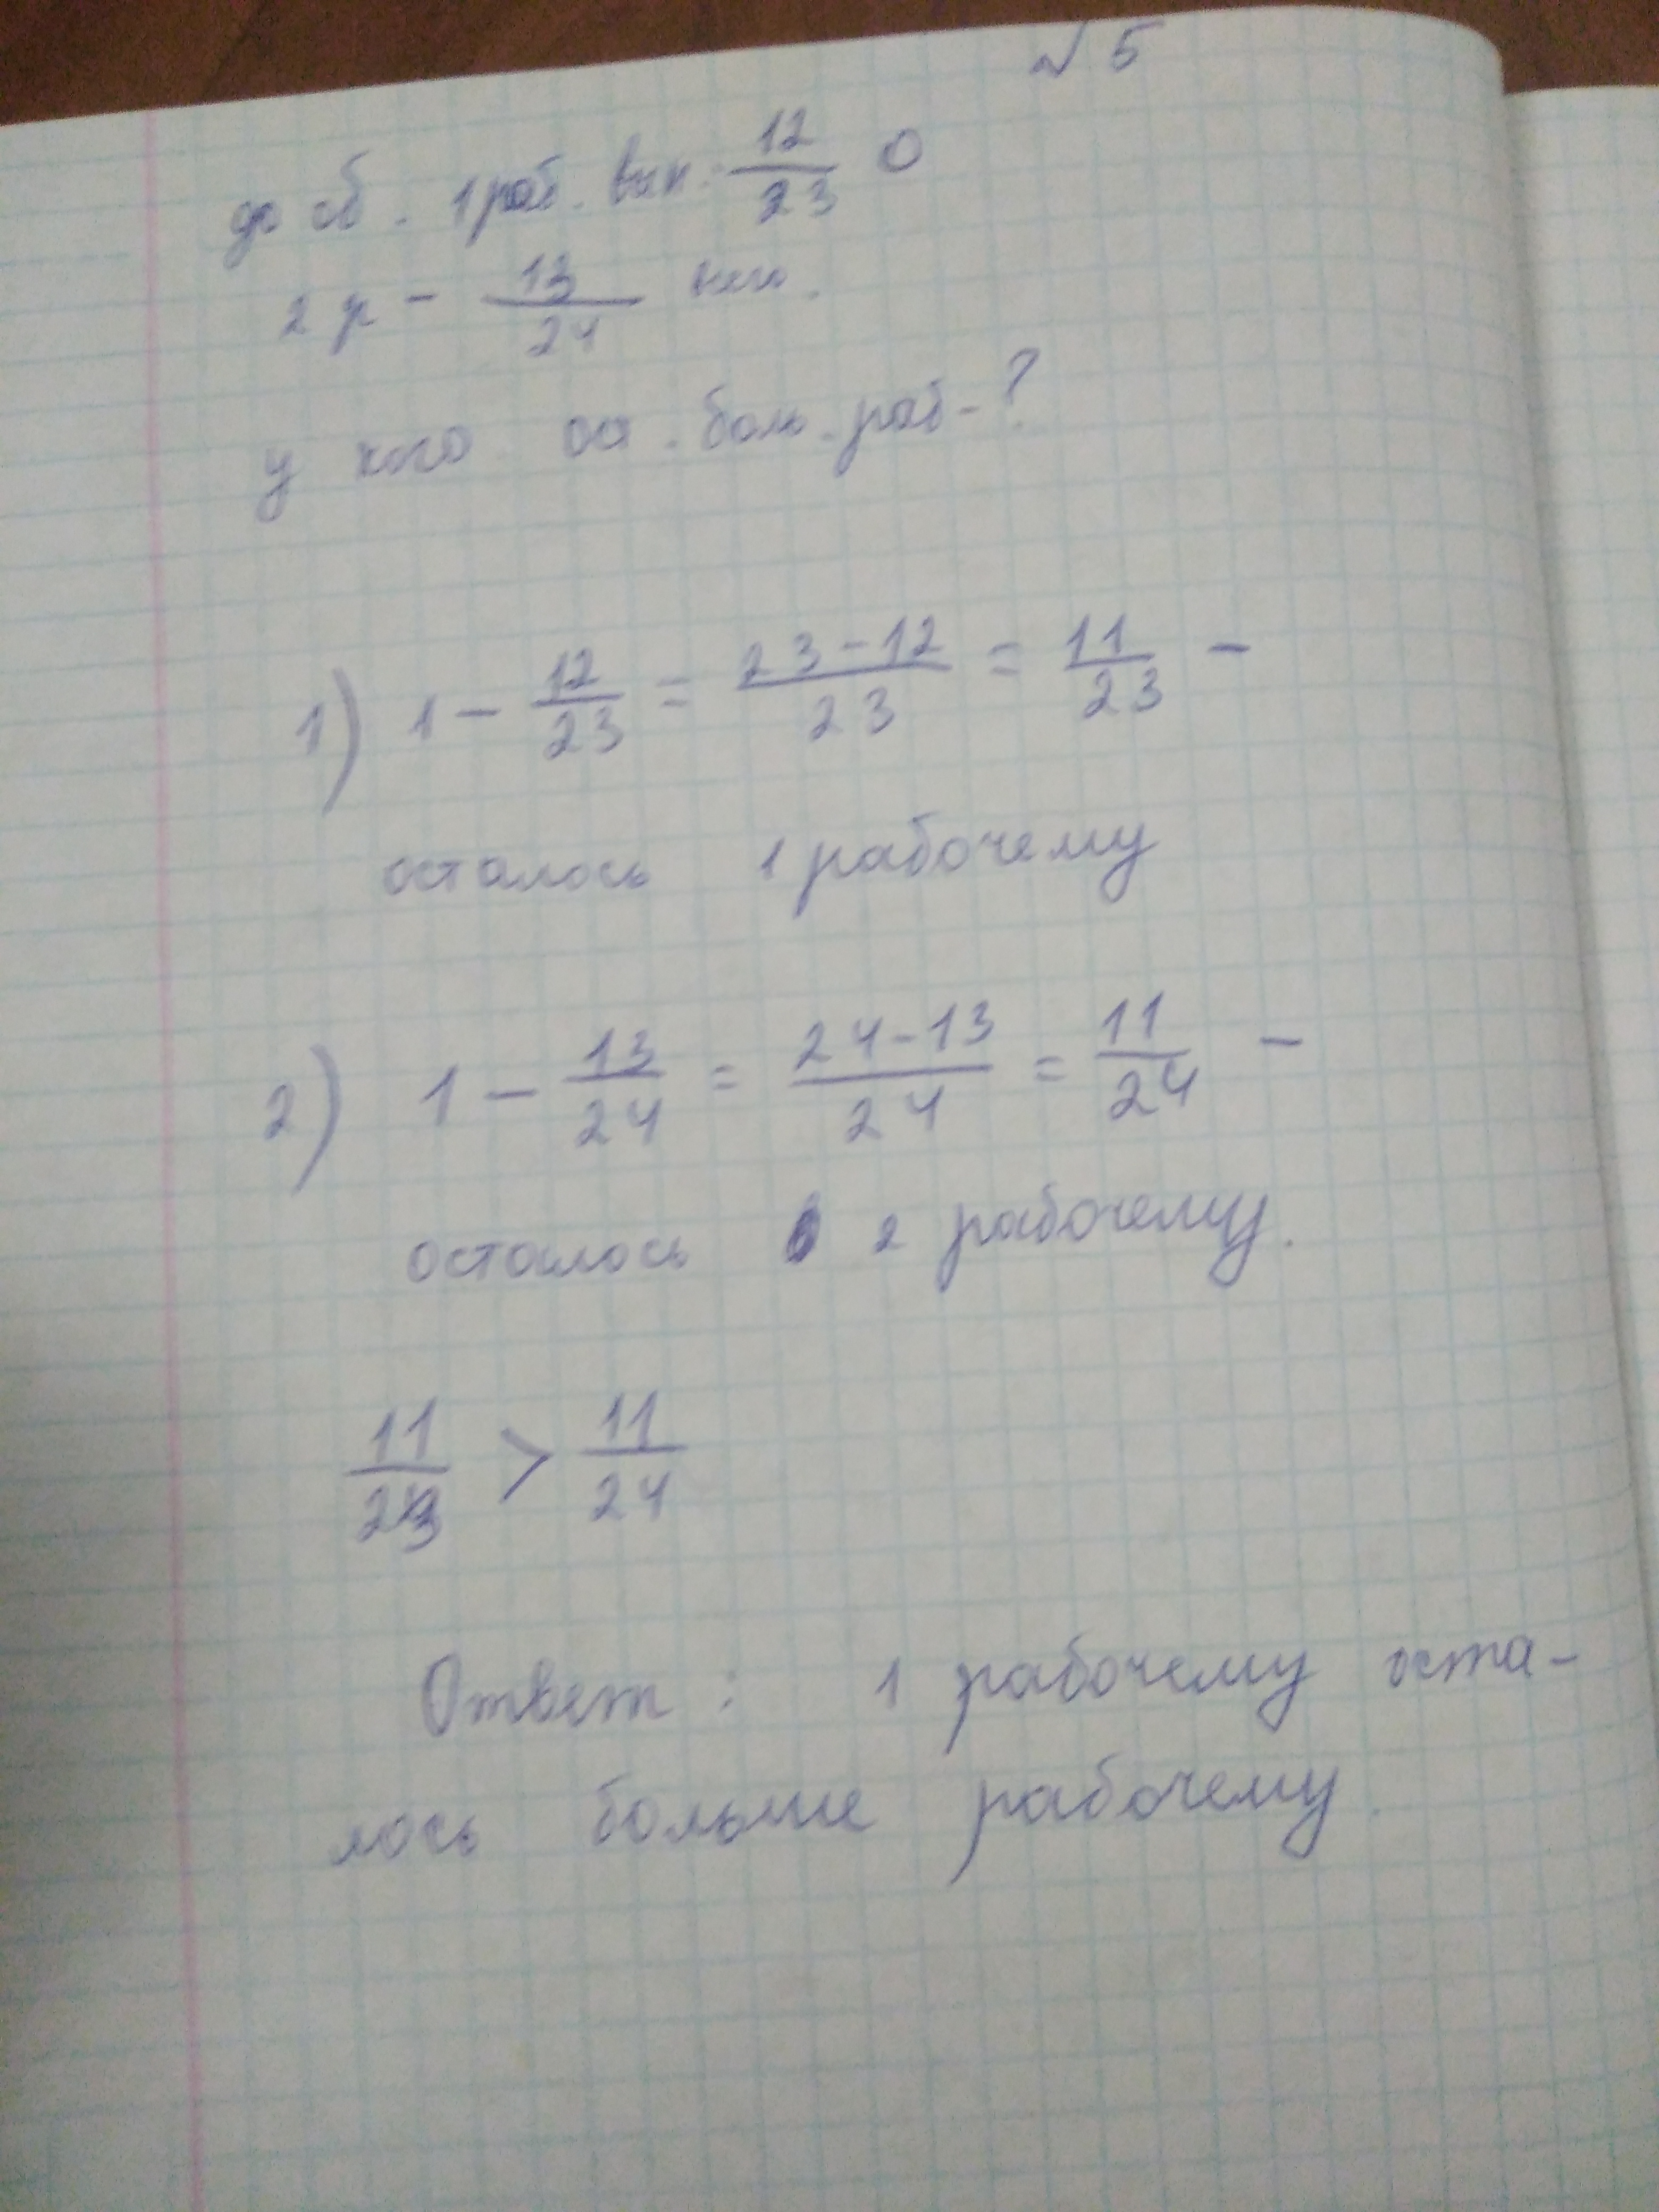 № 5
до об. 1 раб. вып. 12/23 О
2 р - 13/24
у кого ост. боль. раб-?
1) 1 - 12/23 = 23-12/23 = 11/23 -
осталось 1 рабочему
2) 1 - 13/24 = 24-13/24 = 11/24 -
осталось 2 рабочему.
11/23 > 11/24
Ответ: 1 рабочему оста-
лось больше рабочему.